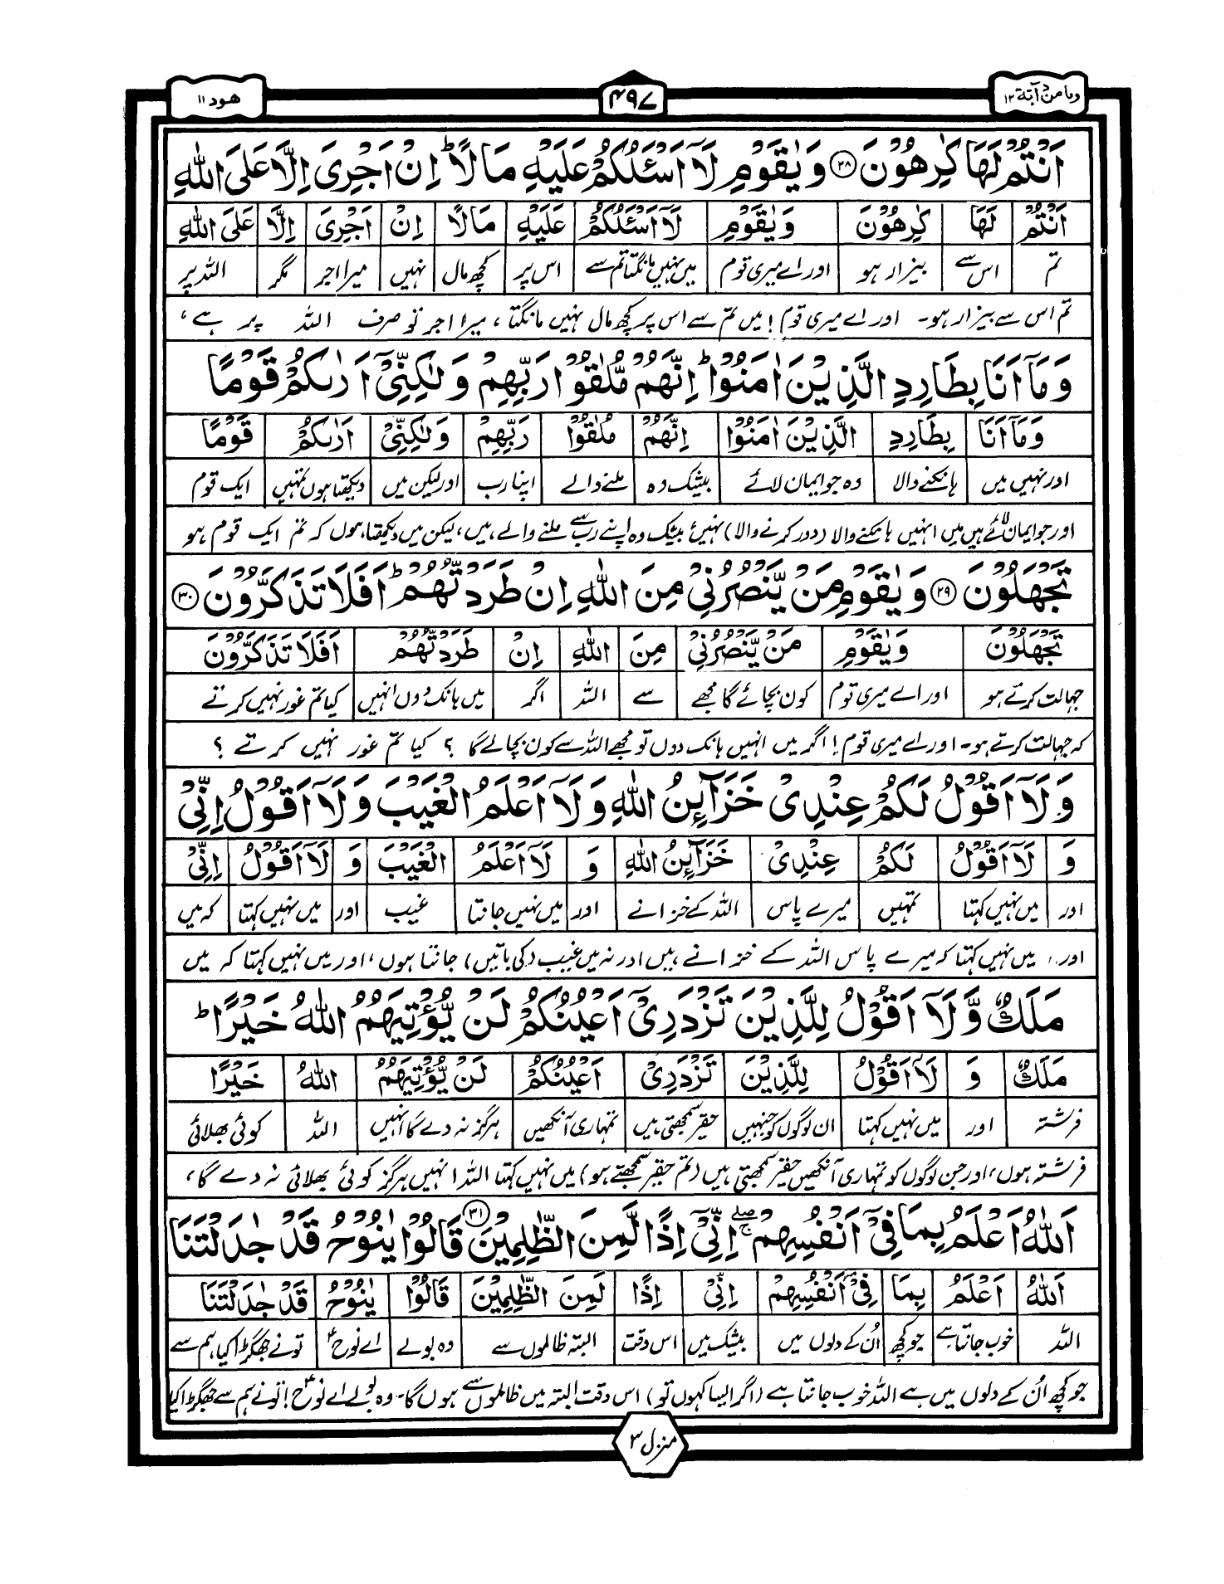 ھود ۱۱
۴۹۷
وما من دآبة ۱۲
اَنْتُمْ لَهَا كٰرِهُوْنَ ﴿۲۸﴾ وَيٰقَوْمِ لَاۤ اَسْـَٔلُكُمْ عَلَيْهِ مَالًا ؕ اِنْ اَجْرِىَ اِلَّا عَلَى اللّٰهِ
اَنْتُمْ لَهَا كٰرِهُوْنَ وَيٰقَوْمِ لَاۤ اَسْـَٔلُكُمْ عَلَيْهِ مَالًا اِنْ اَجْرِىَ اِلَّا عَلَى اللّٰهِ
تم اس سے بیزار ہو اور اے میری قوم میں نہیں مانگتا تم سے اس پر کچھ مال نہیں میرا اجر مگر اللہ پر
تم اس سے بیزار ہو۔ اور اے میری قوم! میں تم سے اس پر کچھ مال نہیں مانگتا، میرا اجر تو صرف اللہ پر ہے،
وَمَاۤ اَنَا بِطَارِدِ الَّذِيْنَ اٰمَنُوْا ؕ اِنَّهُمْ مُّلٰقُوْا رَبِّهِمْ وَلٰكِنِّىْۤ اَرٰىكُمْ قَوْمًا
وَمَاۤ اَنَا بِطَارِدِ الَّذِيْنَ اٰمَنُوْا اِنَّهُمْ مُلٰقُوْا رَبِّهِمْ وَلٰكِنِّىْۤ اَرٰىكُمْ قَوْمًا
اور نہیں میں ہانکنے والا وہ جو ایمان لائے بیشک وہ ملنے والے اپنا رب اور لیکن میں دیکھتا ہوں تمہیں ایک قوم
اور جو ایمان لائے ہیں میں انہیں ہانکنے والا (دور کرنے والا) نہیں، بیشک وہ اپنے رب سے ملنے والے ہیں، لیکن میں دیکھتا ہوں کہ تم ایک قوم ہو
تَجْهَلُوْنَ ﴿۲۹﴾ وَيٰقَوْمِ مَنْ يَّنْصُرُنِىْ مِنَ اللّٰهِ اِنْ طَرَدْتُّهُمْ ؕ اَفَلَا تَذَكَّرُوْنَ ﴿۳۰﴾
تَجْهَلُوْنَ وَيٰقَوْمِ مَنْ يَّنْصُرُنِىْ مِنَ اللّٰهِ اِنْ طَرَدْتُّهُمْ اَفَلَا تَذَكَّرُوْنَ
جہالت کرتے ہو اور اے میری قوم کون بچائے گا مجھے سے اللہ اگر میں ہانک دوں انہیں کیا تم غور نہیں کرتے
کہ جہالت کرتے ہو۔ اور اے میری قوم! اگر میں انہیں ہانک دوں تو مجھے اللہ سے کون بچالے گا ؟ کیا تم غور نہیں کرتے ؟
وَلَاۤ اَقُوْلُ لَكُمْ عِنْدِىْ خَزَآئِنُ اللّٰهِ وَلَاۤ اَعْلَمُ الْغَيْبَ وَلَاۤ اَقُوْلُ اِنِّىْ
وَ لَاۤ اَقُوْلُ لَكُمْ عِنْدِىْ خَزَآئِنُ اللّٰهِ وَ لَاۤ اَعْلَمُ الْغَيْبَ وَ لَاۤ اَقُوْلُ اِنِّىْ
اور میں نہیں کہتا تمہیں میرے پاس اللہ کے خزانے اور میں نہیں جانتا غیب اور میں نہیں کہتا کہ میں
اور میں نہیں کہتا کہ میرے پاس اللہ کے خزانے ہیں اور نہ میں غیب (کی باتیں) جانتا ہوں، اور میں نہیں کہتا کہ میں
مَلَكٌ وَّلَاۤ اَقُوْلُ لِلَّذِيْنَ تَزْدَرِىْۤ اَعْيُنُكُمْ لَنْ يُّؤْتِيَهُمُ اللّٰهُ خَيْرًا ؕ
مَلَكٌ وَ لَاۤ اَقُوْلُ لِلَّذِيْنَ تَزْدَرِىْ اَعْيُنُكُمْ لَنْ يُّؤْتِيَهُمُ اللّٰهُ خَيْرًا
فرشتہ اور میں نہیں کہتا ان لوگوں کو جنہیں حقیر سمجھتی ہیں تمہاری آنکھیں ہرگز نہ دے گا انہیں اللہ کوئی بھلائی
فرشتہ ہوں، اور جن لوگوں کو تمہاری آنکھیں حقیر سمجھتی ہیں (تم حقیر سمجھتے ہو) میں نہیں کہتا اللہ انہیں ہرگز کوئی بھلائی نہ دے گا،
اَللّٰهُ اَعْلَمُ بِمَا فِىْۤ اَنْفُسِهِمْ ۖۚ اِنِّىْۤ اِذًا لَّمِنَ الظّٰلِمِيْنَ ﴿۳۱﴾ قَالُوْا يٰنُوْحُ قَدْ جٰدَلْتَنَا
اَللّٰهُ اَعْلَمُ بِمَا فِىْۤ اَنْفُسِهِمْ اِنِّىْ اِذًا لَمِنَ الظّٰلِمِيْنَ قَالُوْا يٰنُوْحُ قَدْ جٰدَلْتَنَا
اللہ خوب جانتا ہے جو کچھ اُن کے دلوں میں بیشک میں اس وقت البتہ ظالموں سے وہ بولے اے نوحؑ تونے جھگڑا کیا ہم سے
جو کچھ اُن کے دلوں میں ہے اللہ خوب جانتا ہے (اگر ایسا کہوں تو) اس وقت البتہ میں ظالموں سے ہوں گا۔ وہ بولے اے نوحؑ! تونے ہم سے جھگڑا کیا
منزل ۳